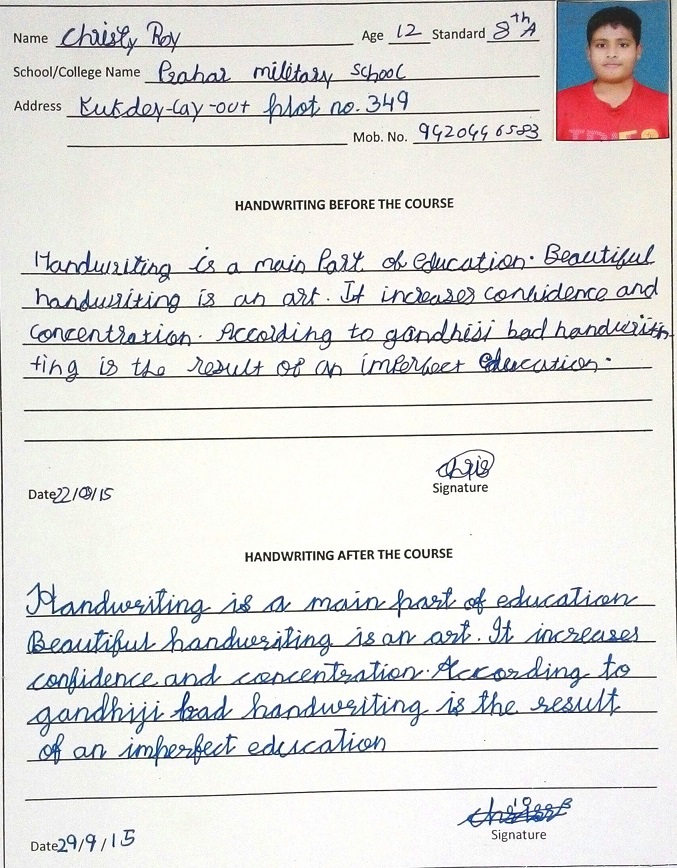 Name Christy Roy Age 12 Standard 8th A
School/College Name Prahar military school
Address Kukdey-lay-out plot no. 349
Mob. No. 9420446583
HANDWRITING BEFORE THE COURSE
Handwriting is a main Part of education. Beautiful
handwriting is an art. It increases confidence and
concentration. According to gandhiji bad handwritin-
ting is the result of an imperfect education.
Chris
Date 22/8/15
Signature
HANDWRITING AFTER THE COURSE
Handwriting is a main part of education
Beautiful handwriting is an art. It increases
confidence and concentration. According to
gandhiji bad handwriting is the result
of an imperfect education
Signature
Date 29/9/15